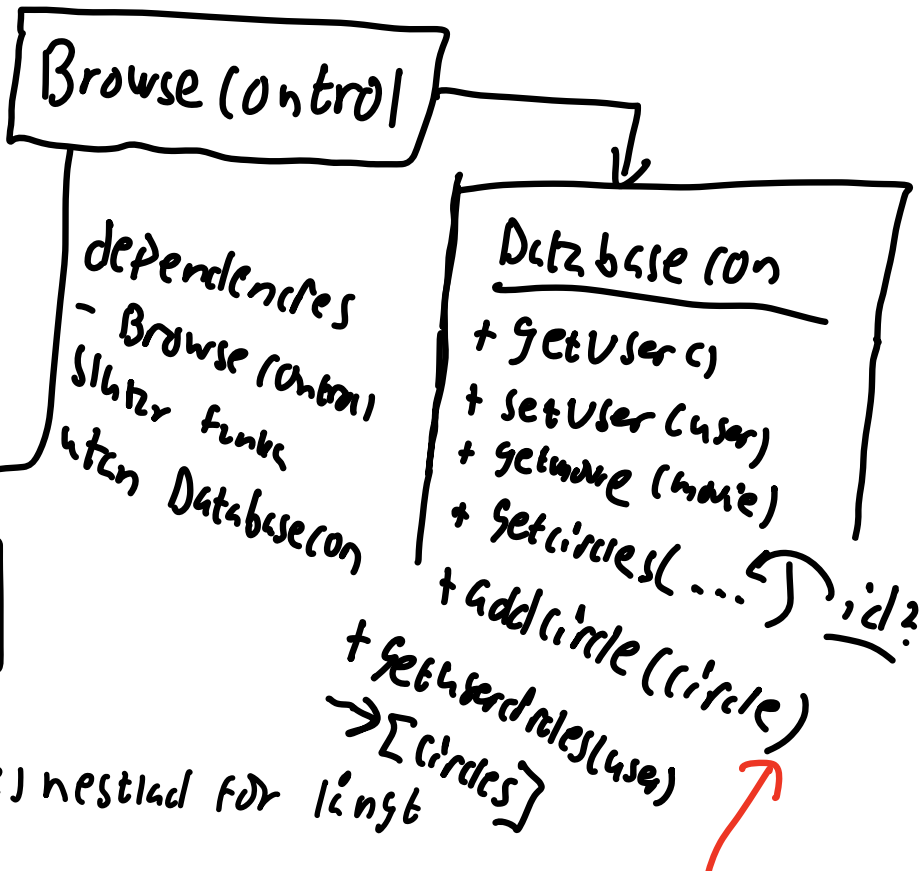 Browse Control
dependencies
- Browse Control
slutar funka
utan Databasecon
Database con
+ getUser()
+ setUser (user)
+ getmovie (movie)
+ getcircles(...)
id?
+ addcircle (circle)
+ getusercircles(user)
→ [circles]
nästlad för långt